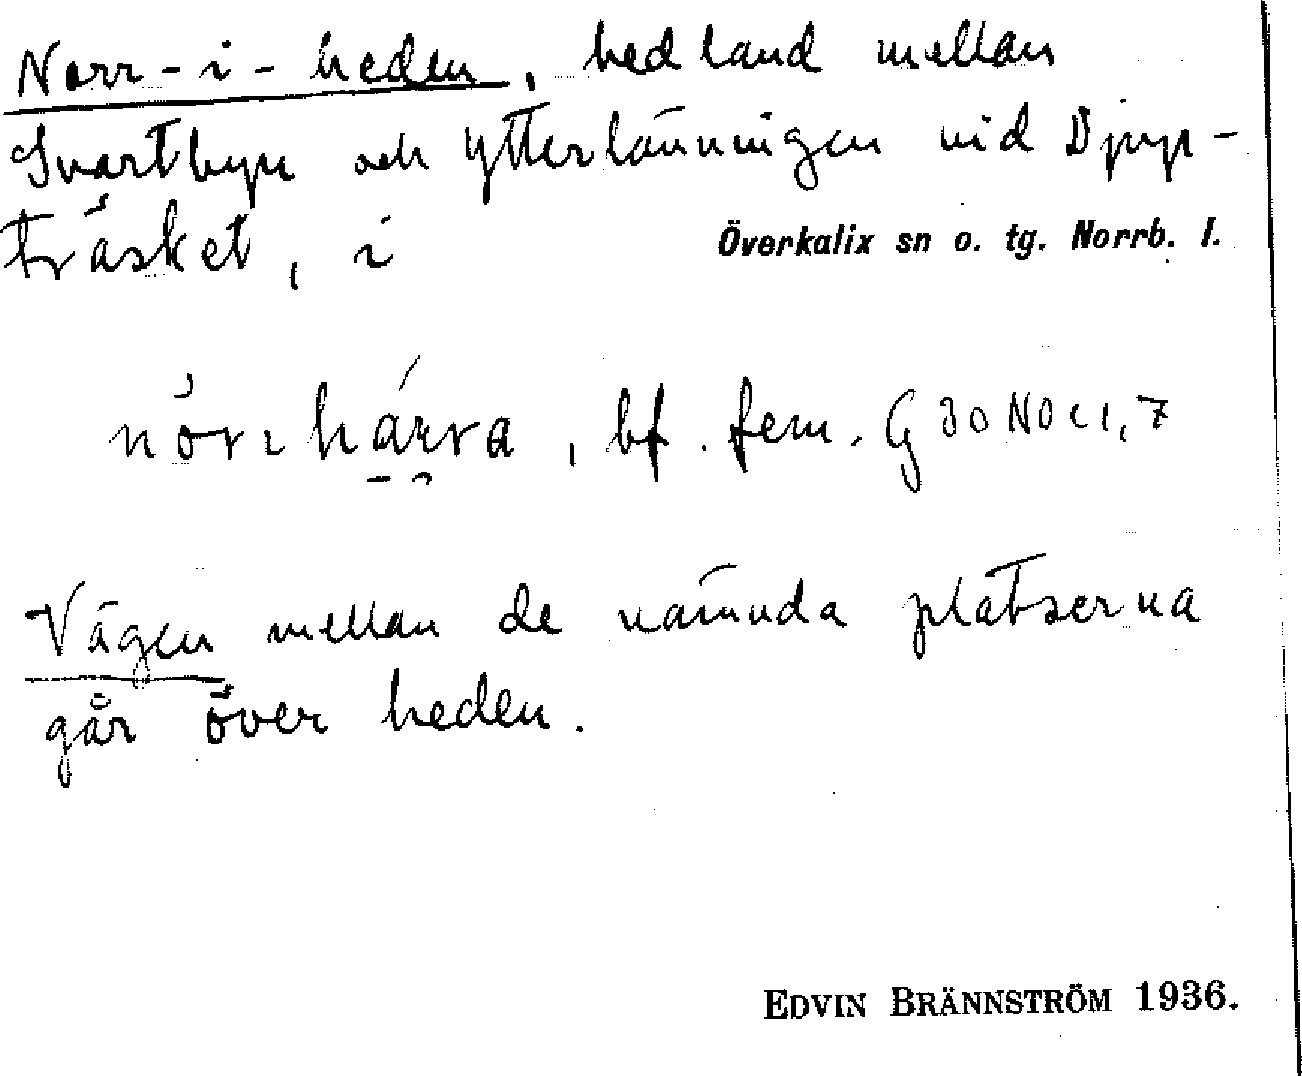 Norr-i-heden, hedland mellan
Svartbyn och Ytterlänningen vid Djup-
träsket, i Överkalix sn o. tg. Norrb. l.
bf. fem.
Vägen mellan de nämnda platserna
går över heden.
EDVIN BRÄNNSTRÖM 1936.